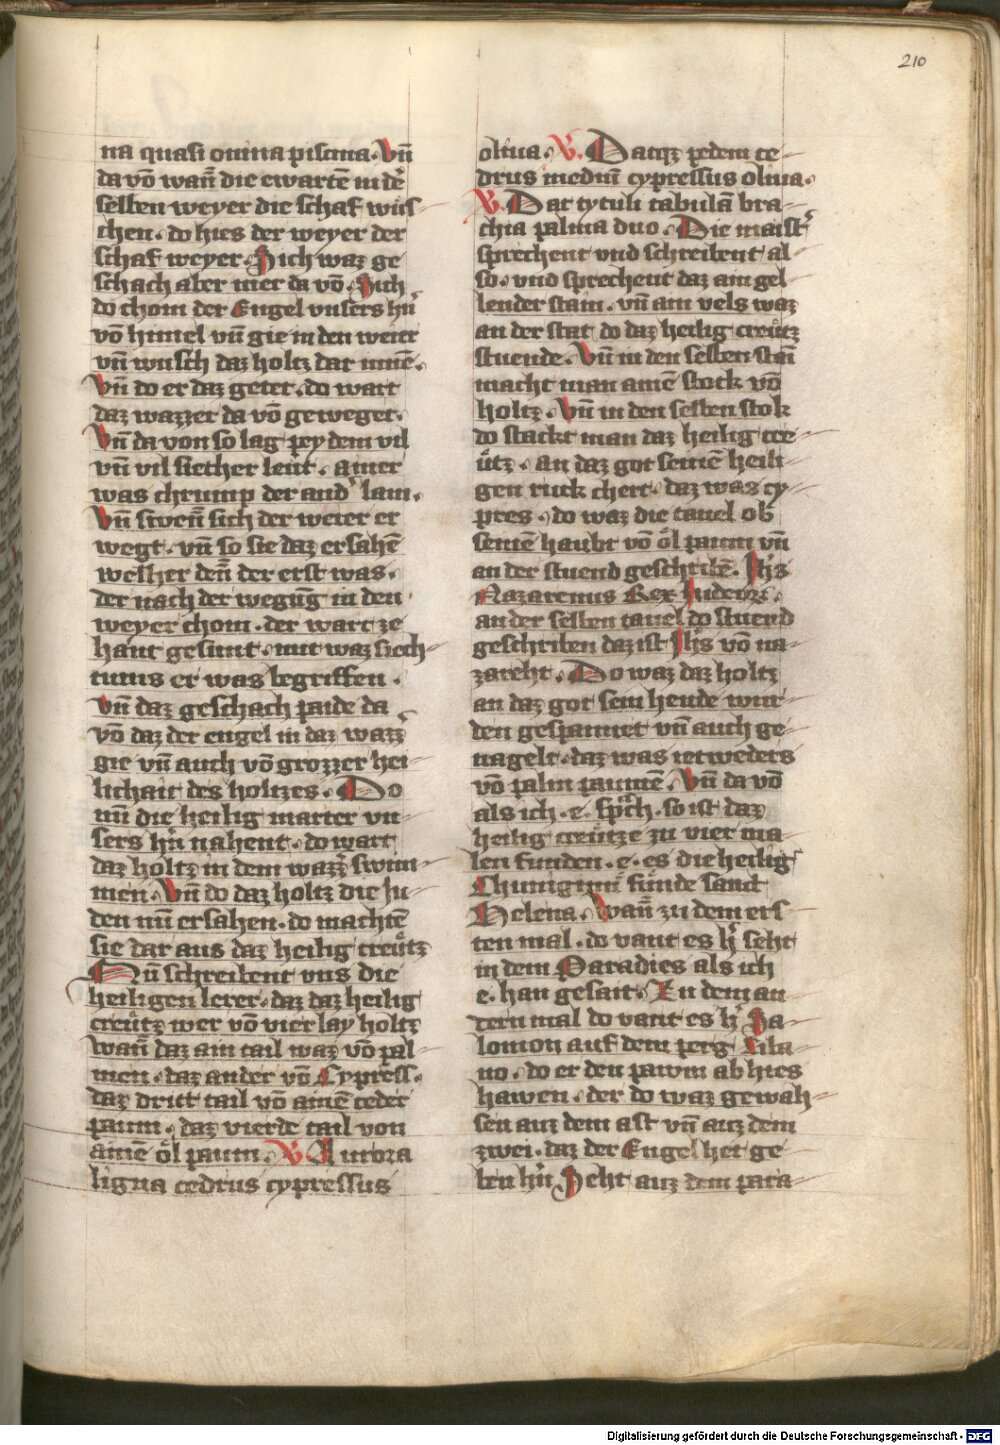 210
na quasi ouina piscina. Vñ
da võ wañ die ewartē in dē
selben weyer die schaf wus-
chen. do hies der weyer der
schaf weyer. Sich waz ge
schach aber mer da võ. Sich
do chom der Engel vnsers hñ
võ himel vñ gie in den weier
vñ wusch daz holtz dar inne.
Vñ do er daz getet. do wart
daz wazzer da võ geweget.
Vñ da von so lag pey dem vil
vñ vil siecher leut. ainer
was chrump der and' lam.
Vñ sweñ sich der weier er
wegt. vñ so sie daz ersahē
welher deñ der erst was.
der nach der wegūg in den
weyer chom. der wart ze
hant gesunt. mit waz siech-
tums er was begriffen.
Vñ daz geschach paide da
võ daz der engel in daz wazz'
gie vñ auch võ grozzer hei-
lichait des holtzes. Do
nu die heilig marter vn
sers hñ nahent. do wart
daz holtz in dem wazz' swim-
men. Vñ do daz holtz die Ju-
den nu ersahen. do machtē
sie dar aus daz heilig creůtz
Nu schreibent vns die
heiligen lerer. daz daz heilig
creůtz wer võ vier lay holtz
wañ daz ain tail waz võ pal-
men. daz ander võ Cypress.
daz dritt tail võ ainē ceder
paum. daz vierde tail von
ainē ŏl paum. V. Aurora
ligna cedrus cypressus
oliua. V. Datqz pedem ce-
drus mediū cypressus oliua.
V. Dat tytuli tabulā bra-
chia palma duo. Die maist'
sprechent vnd schreibent al-
so. vnd sprechent daz ain gel-
lender stain. vñ ain vels waz
an der stat do daz heilig creůtz
stuende. Vñ in den selben stain
macht man ainē stock võ
holtz. Vñ in den selben stok
do stackt man daz heilig cre-
ůtz. an daz got seinē heili-
gen ruck chert. daz was cy-
pres. do waz die tauel ob
seinē haubt võ ŏl paum vñ
an der stuend geschribē. Jhs
Nazarenus Rex Judeorz.
an der selben tauel do stuend
geschriben daz ist Jhs võ na-
zareht. Do waz daz holtz
an daz got sein hende wur-
den gespannet vñ auch ge-
nagelt. daz was ietweders
võ palm paumē. Vñ da võ
als ich. e. sprich. so ist daz
heilig creůtze zu vier ma-
len funden. e. es die heilig
Chuniginn fūnde sand
Helena. Wañ zu dem ers-
ten mal. do vant es h' seht
in dem Paradies als ich
e. han gesait. Zu dem an-
dern mal do vant es h' Sa-
lomon auf dem perg Liba
no. do er den pawm ab hies
hawen. der do waz gewah-
sen auz dem ast vñ auz dem
zwei. daz der Engel het ge-
ben hñ Seht auz dem para-
Digitalisierung gefördert durch die Deutsche Forschungsgemeinschaft - DFG